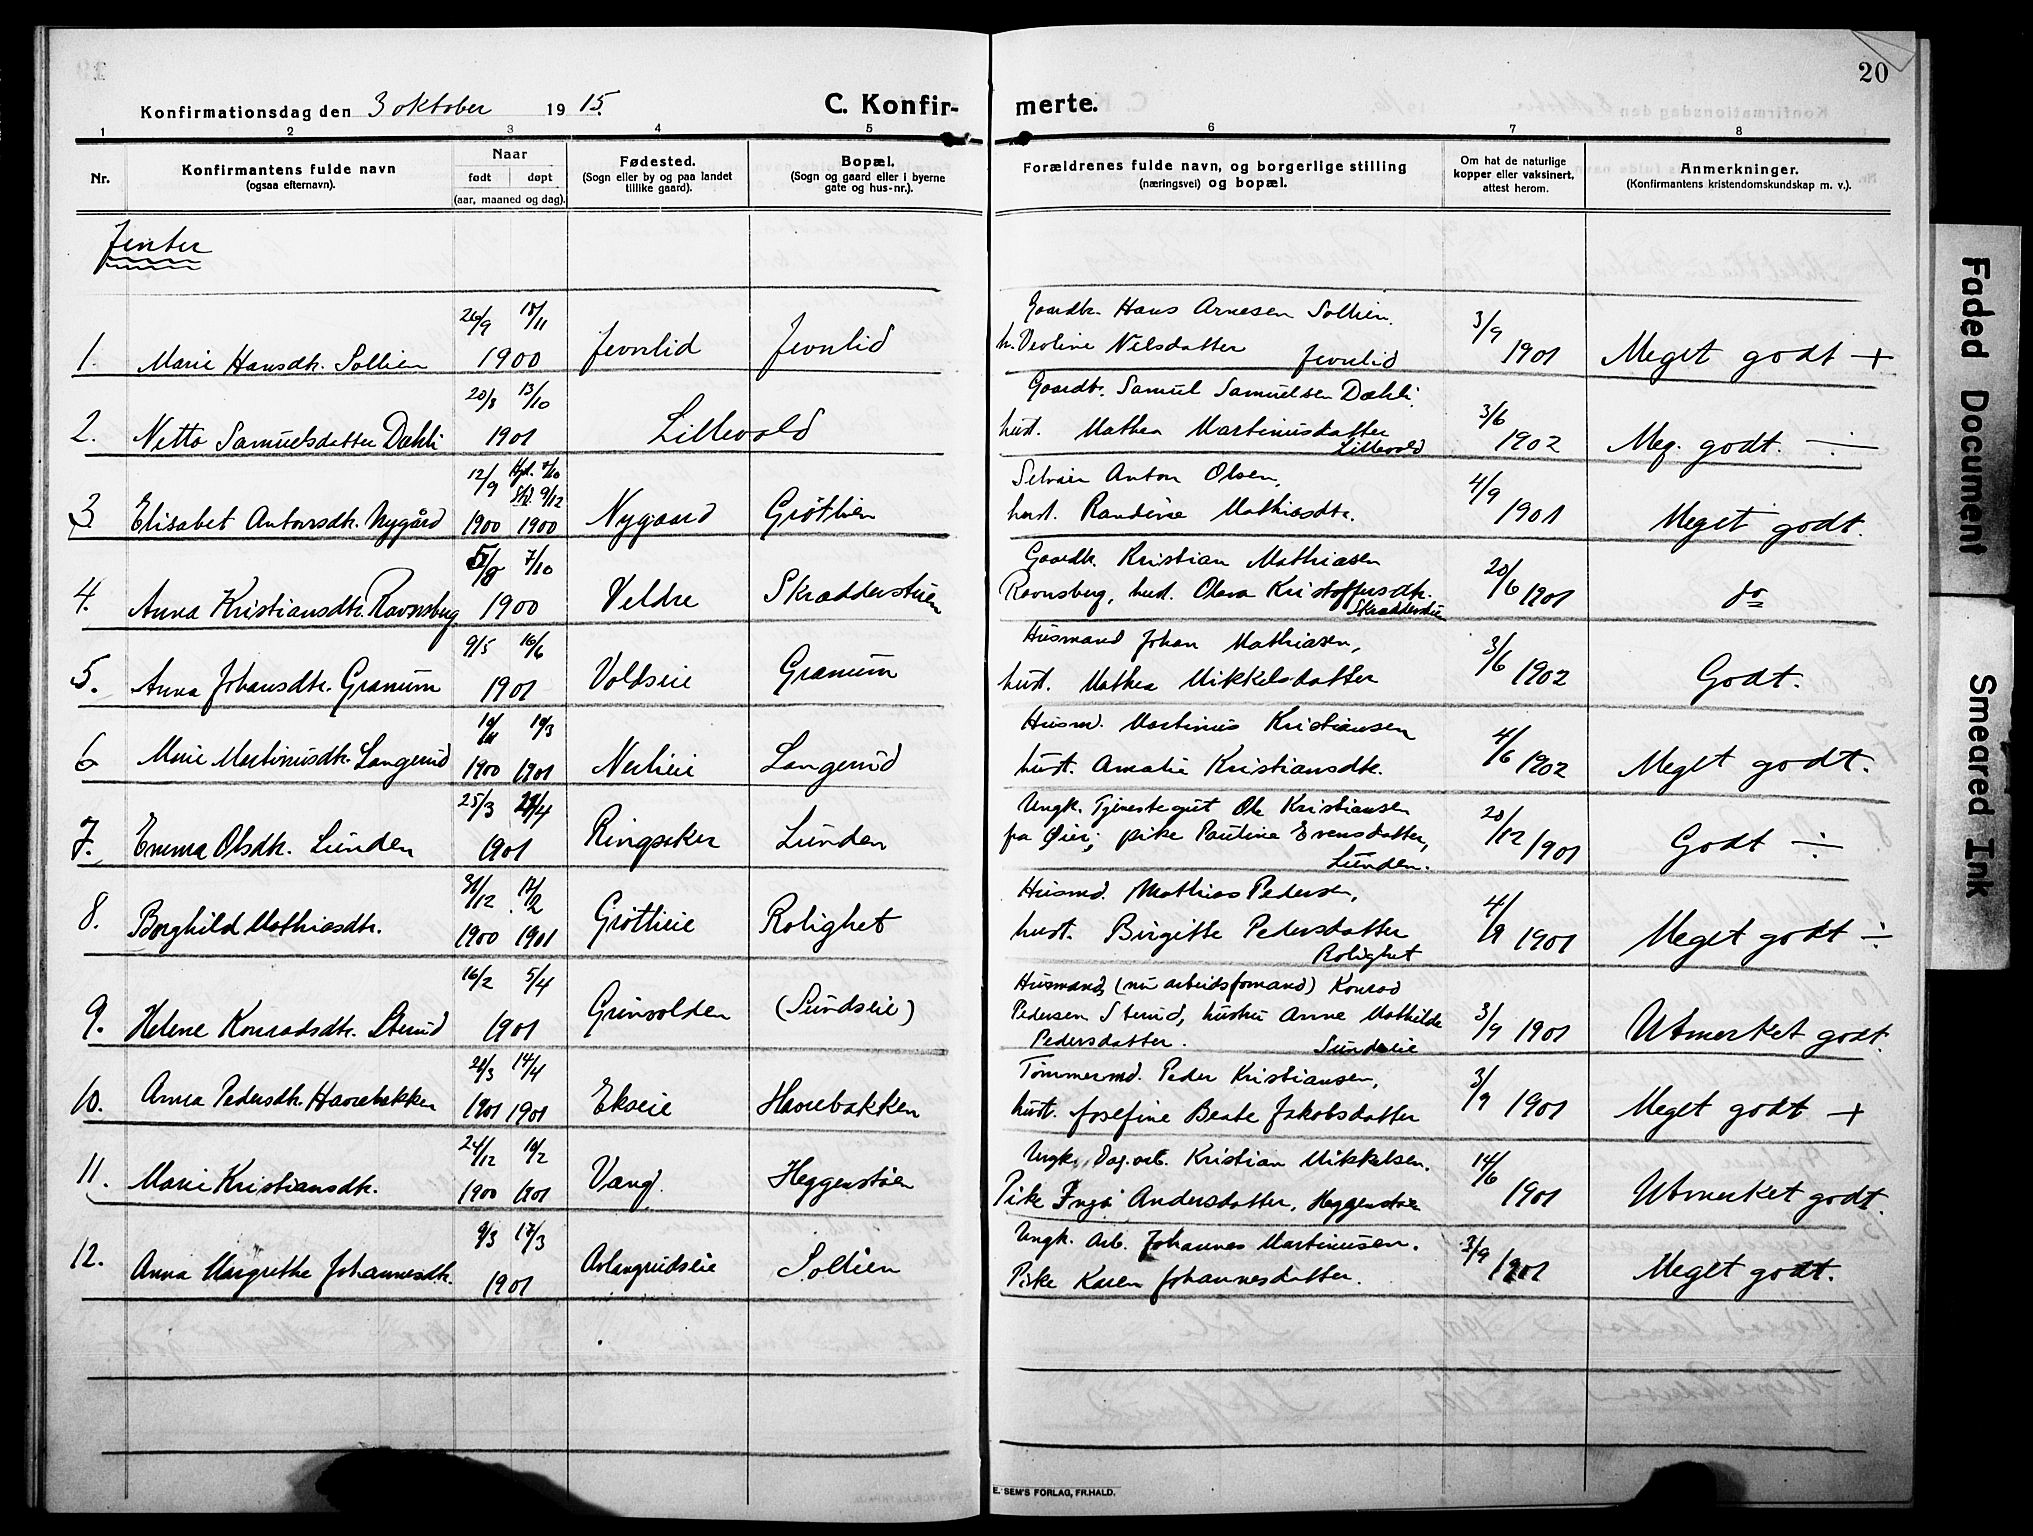 20
Konfirmationsdag den 3 oktober 1915.
C. Konfir- merte.
1 2 3 4 5 6 7 8
Nr.
Konfirmantens fulde navn
(ogsaa efternavn).
Naar
født døpt
(aar, maaned og dag).
Fødested.
(Sogn eller by og paa landet
tillike gaard).
Bopæl.
(Sogn og gaard eller i byerne
gate og hus-nr.).
Forældrenes fulde navn, og borgerlige stilling
(næringsvei) og bopæl.
Om hat de naturlige
kopper eller vaksinert,
attest herom.
Anmerkninger.
(Konfirmantens kristendomskundskap m. v.).
Jenter
26/9 18/11
1. Marie Hansdtr. Sollien 1900 Jevnlid Jevnlid
Gaardbr. Hans Arnesen Sollien,
h. Verline Nilsdatter Jevnlid
3/9 1901 Meget godt +
20/8 13/10
2. Netta Samuelsdatter Dæhli 1901 Lillevold
Gaardbr. Samuel Samuelsen Dæhli,
hust. Mathea Martinusdatter
Lillevold
3/6 1902 Meg. godt. ÷
12/9 Hjd. 7/10
Std. 9/12
3. Elisabet Antonsdtr. Nygård 1900 1900 Nygaard Grøtlien
Selveier Anton Olsen,
hust. Randine Mathiasdtr.
4/9 1901 Meget godt.
5/8 7/10
4. Anna Kristiansdtr. Ravnsberg 1900 Veldre Skrædderstuen
Gaardbr. Kristian Mathiasen
Ravnsberg, hust. Olava Kristoffersdtr.
Skrædderstuen
20/6 1901 do
9/5 16/6
5. Anna Johansdtr. Granum 1901 Voldseie Granum
Husmand Johan Mathiasen,
hust. Mathea Mikkelsdatter
3/6 1902 Godt.
10/3
6 Marie Martinusdtr. Langerud 1900 1901 Nerlieie Langerud
Husmd. Martinus Kristiansen
hust. Amalie Kristiansdtr.
4/6 1902 Meget godt.
25/3 28/4
7. Emma Olsdtr. Lunden 1901 Ringsaker Lunden
Ungk. Tjenestegut Ole Kristiansen
fra Øier; pike Pauline Evensdatter,
Lunden.
20/12 1901 Godt ÷
31/12 17/2
8. Borghild Mathiasdtr. 1900 1901 Grøtlieie Rolighet
Husmd. Mathias Pedersen,
hust. Birgitte Pedersdatter
Rolighet
4/9 1901 Meget godt ÷
16/2 5/4
9. Helene Konradsdtr. Sterud 1901 Grinvolden (Sundseie)
Husmand (nu arbeidsformand) Konrad
Pedersen Sterud, hustru Anne Mathilde
Pedersdatter. Sundseie
3/9 1901 Utmerket godt.
20/3 14/4
10. Anna Pedersdtr. Havrebakken 1901 1901 Ekseie Havrebakken
Tømmermd. Peder Kristiansen,
hust. Josefine Beate Jakobsdatter
3/9 1901 Meget godt +
24/12 10/2
11. Marie Kristiansdtr. 1900 1901 Vang. Heggenstøen
Ungk. Dag.arb. Kristian Mikkelsen.
Pike Inga Andersdatter, Heggenstøen
14/6 1901 Utmerket godt.
9/3 17/3
12. Anna Margrethe Johannesdtr. 1901 Avlangrudseie Sollien
Ungk. Arb. Johannes Martinusen.
Pike Karen Johannesdatter.
3/9 1901 Meget godt.
E. SEM'S FORLAG, FR.HALD.
Faded Document
Smeared Ink